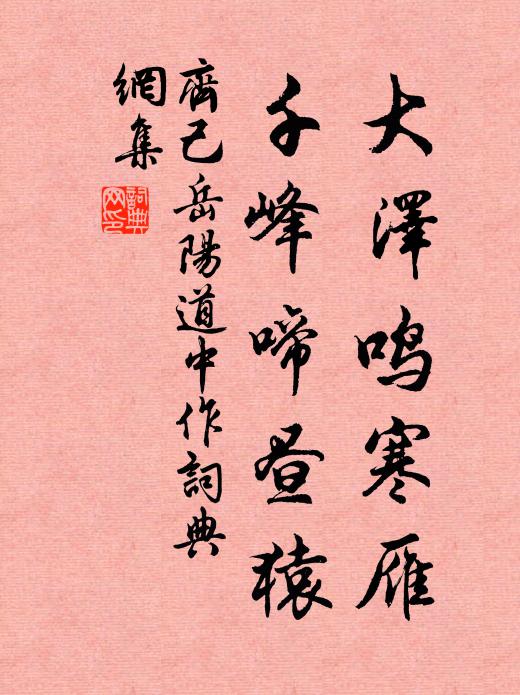 大澤鳴寒雁
千峰啼昼猿
齊己岳陽道中作詞典
網集
詞典
网印